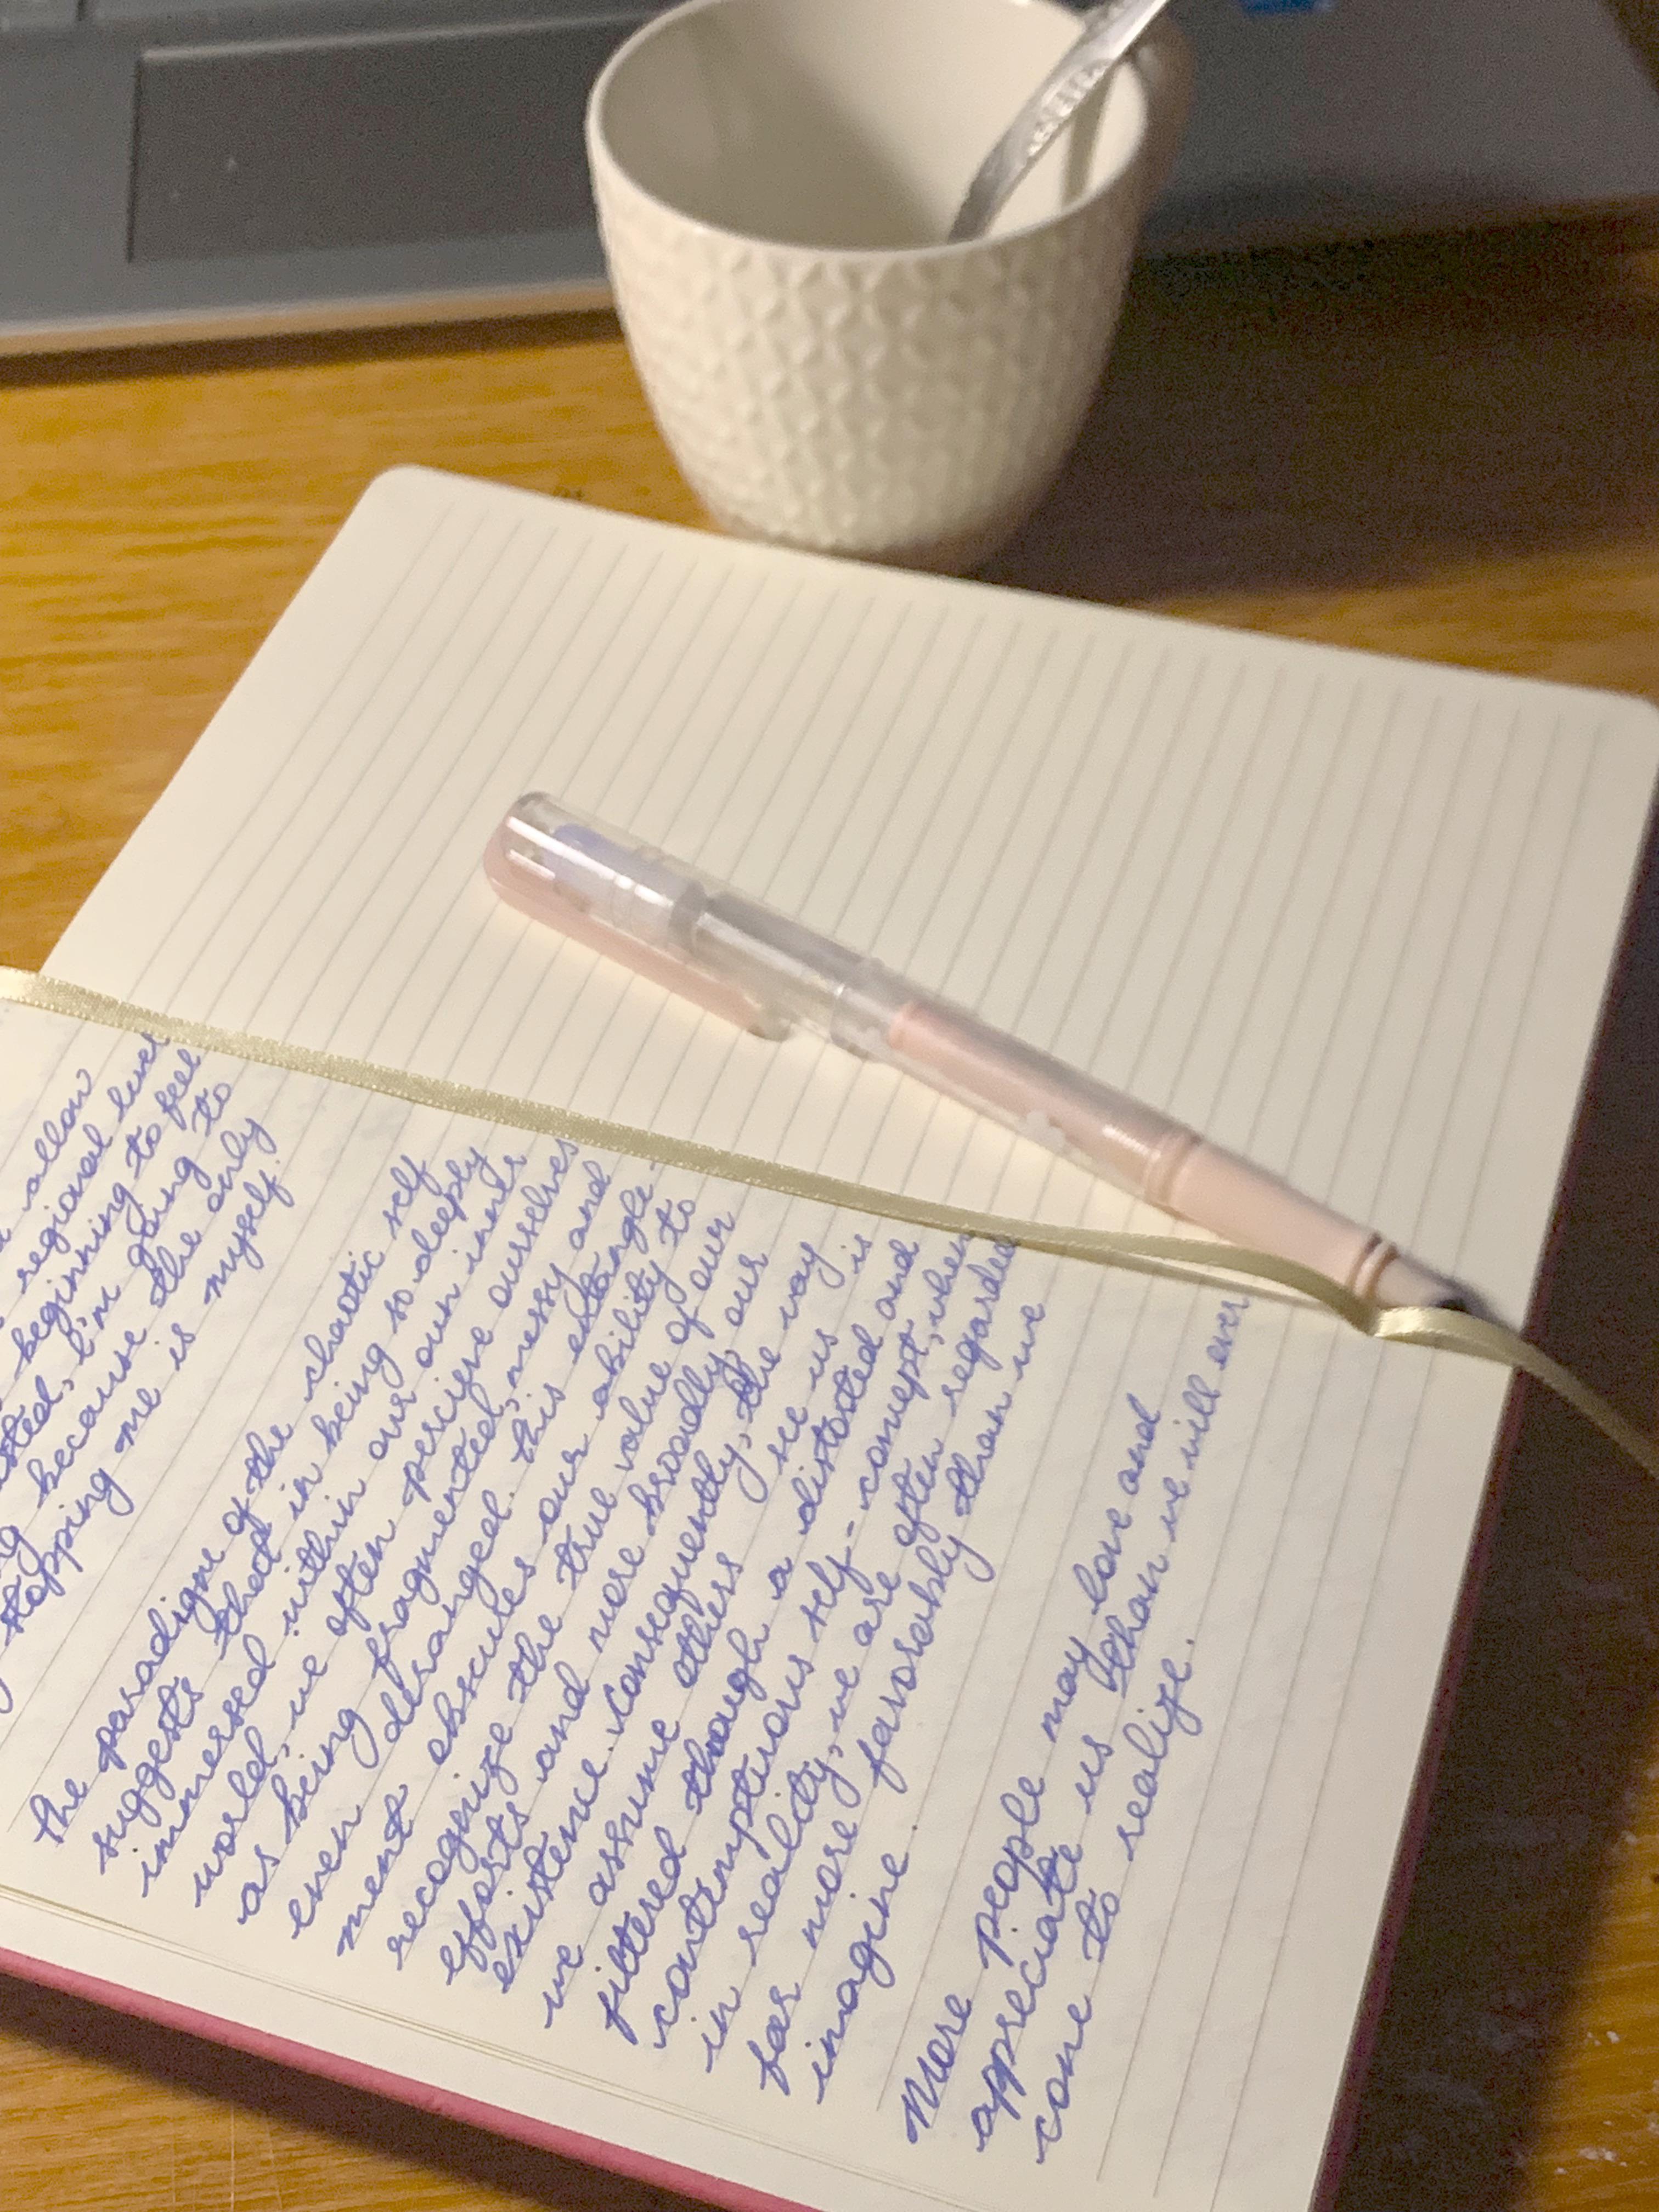 allow
regional level
beginning to feel
I'm going to
because the only
stopping me is myself.
The paradigm of the chaotic self
suggests that in being so deeply
immersed within our own inner
world, we often percieve ourselves
as being fragmented, messy and
even deranged. This estangle-
ment obscures our ability to
recognize the true value of our
efforts and more broadly, our
existence. Consequently, the way
we assume others see us is
filtered through a distorted and
contemptuous self-concept, when
in reality, we are often regarded
far more favorably than we
imagine.
More people may love and
appreciate us than we will ever
come to realize.